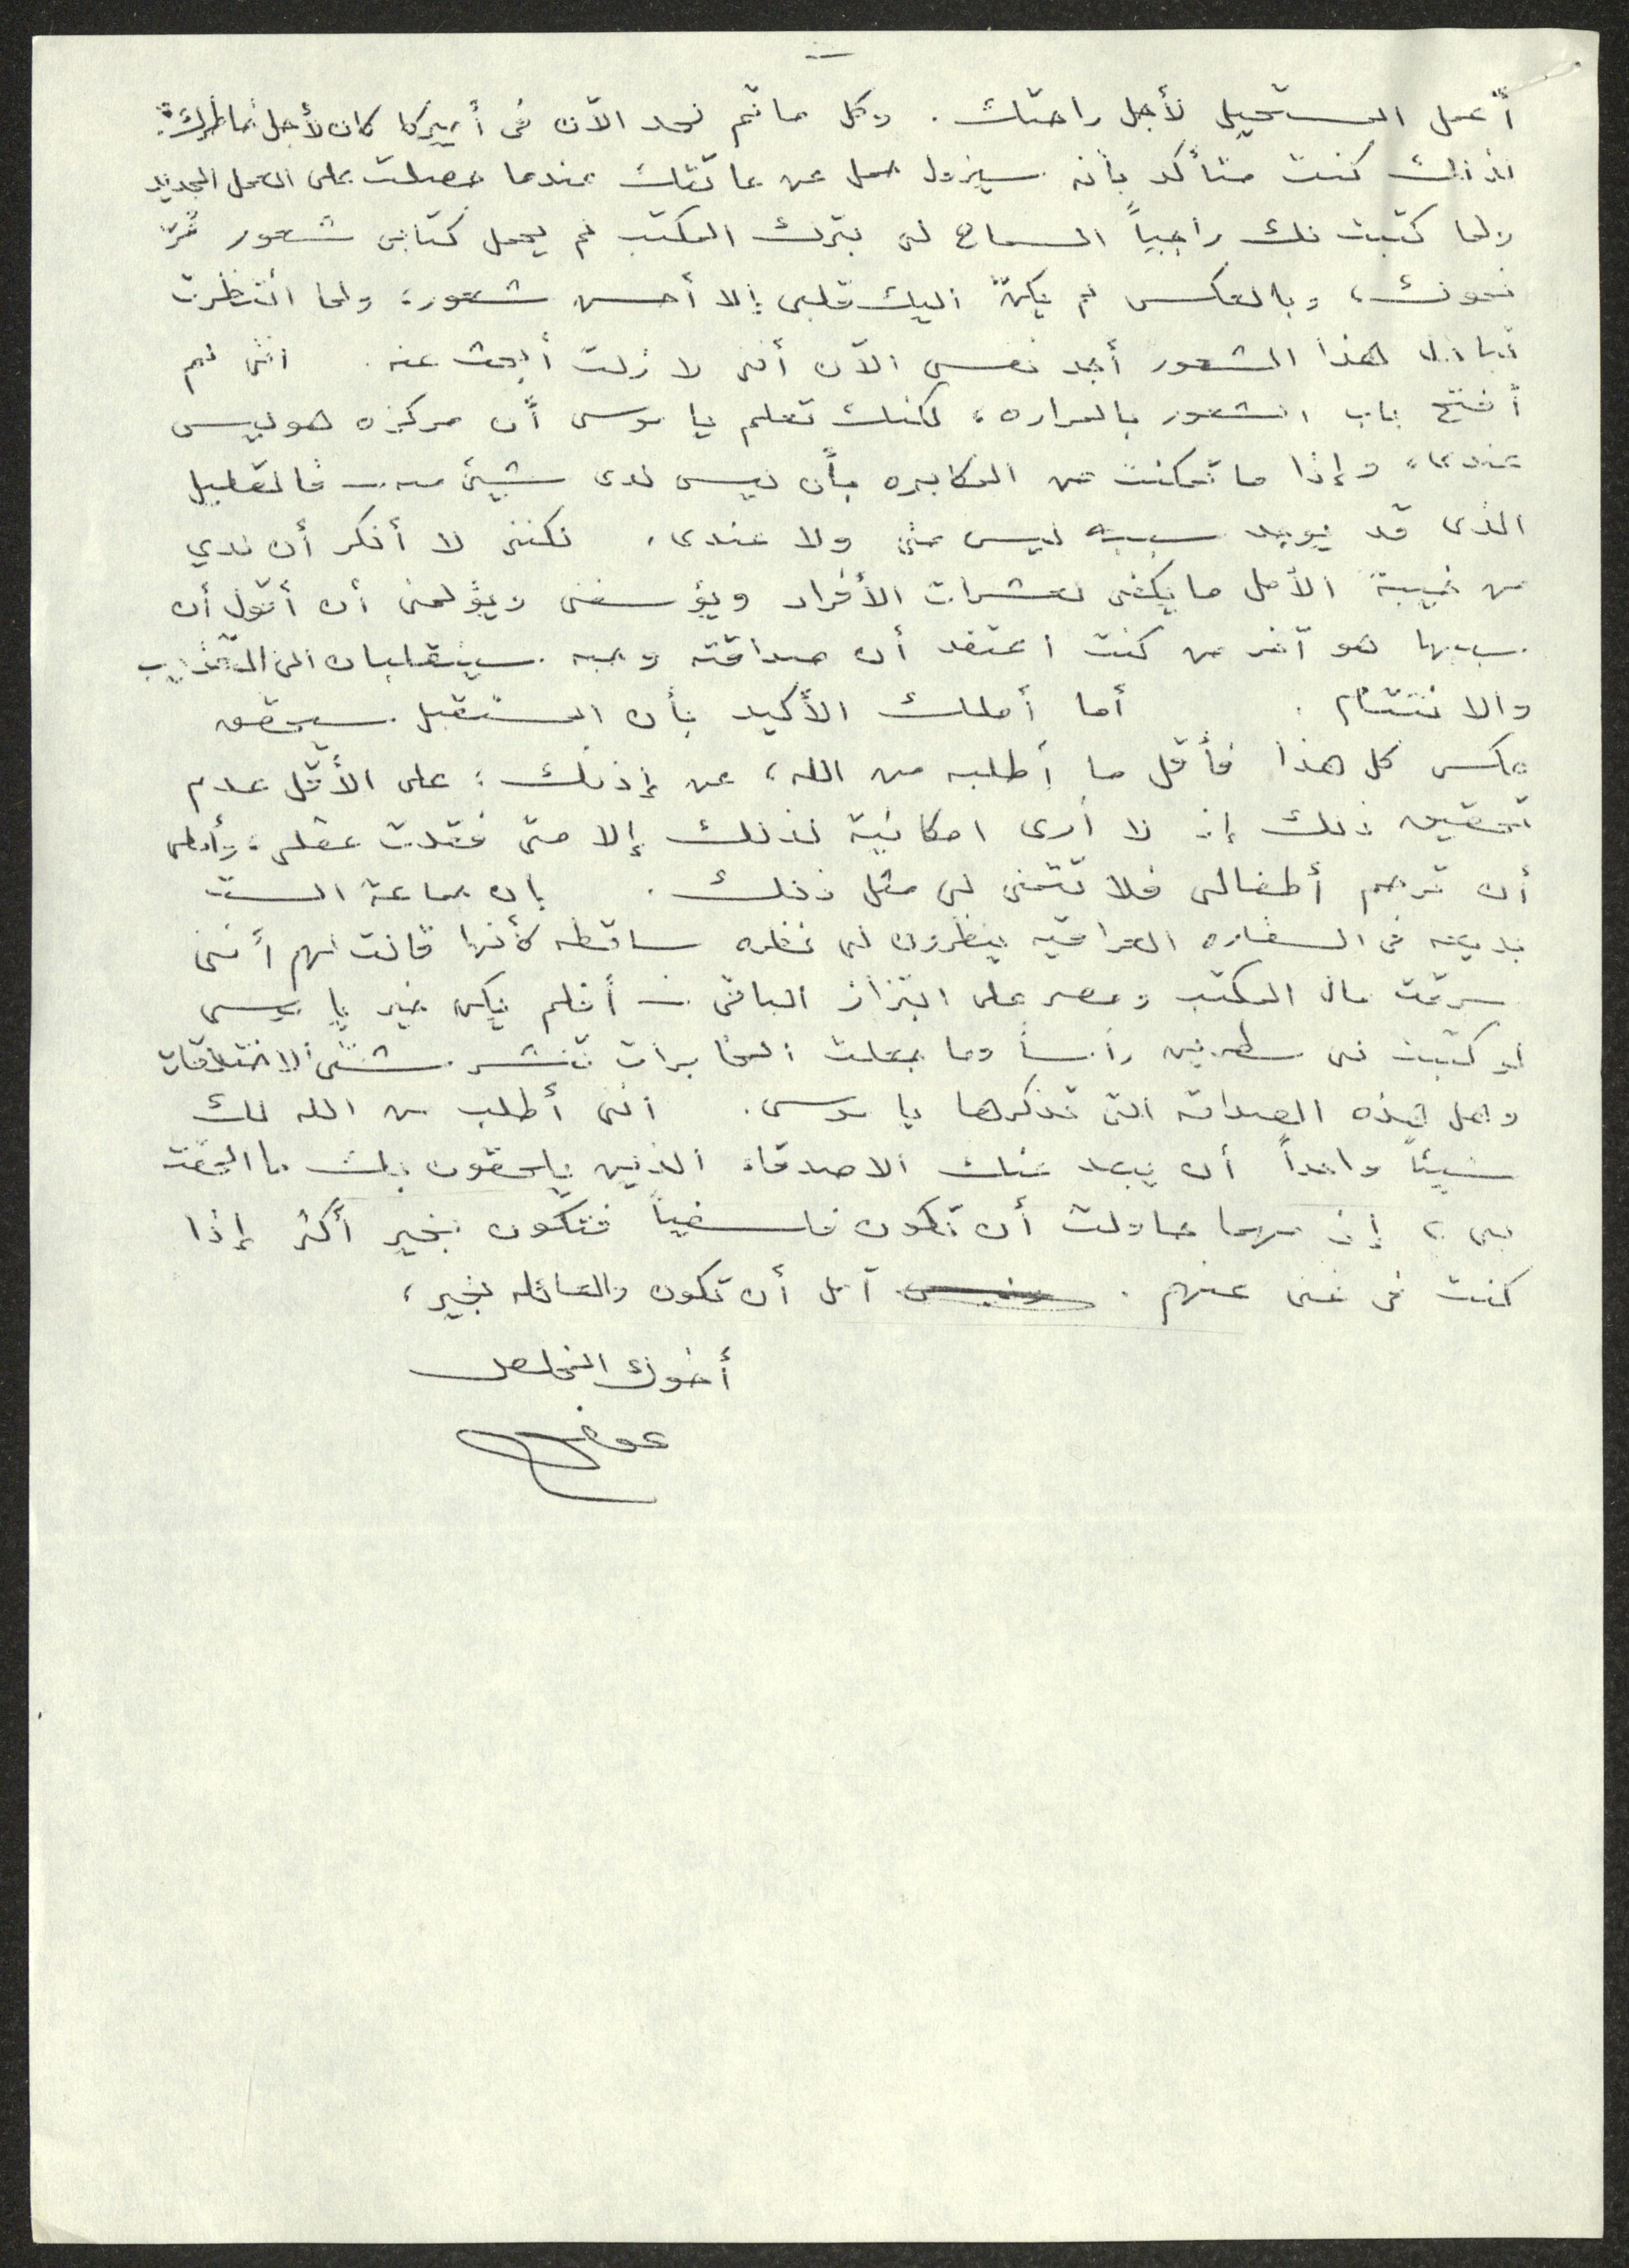 أعمل المستحيل لأجل راحتك. وكل ما تم لحد الآن في أميركا كان لأجل خاطرك.
لذلك كنت متأكد بأنه سيزول حمل عن عاتقك عندما حصلت على العمل الجديد
ولما كتبت لك راجياً السماح لى بترك المكتب لم يحمل كتابى شعور
نحوك، وبالعكس لم يكنّ اليك قلبى إلا أحسن شعور، ولما انتظرت
تبادل هذا الشعور أجد نفسى الآن أنى لا زلت أبحث عنه. اننى لم
أفتح باب الشعور بالمراره، لكنك تعلم يا موسى أن مركزه هو ليس
عندى، وإذا ما تمكنت من المكابره بأن ليس لدى شيئ منه - فالقليل
الذى قد يوجد سببه ليس منى ولا عندى. لكننى لا أنكر أن لدي
من خيبة الأمل ما يكفى لعشرات الأفراد ويؤسفنى ويؤلمنى أن أقول أن
سببها هو آخر من كنت اعتقد أن صداقته وحبه سينقلبان الى التعذيب
والانتقام. أما أملك الأكيد بأن المستقبل سيحقق
عكس كل هذا فأقل ما أطلبه من الله، عن إذنك: على الأقل عدم
تحقيق ذلك إذ لا أرى امكانية لذلك إلا متى فقدت عقلى، وأملى
أن ترحم أطفالى فلا تتمنى لى مثل ذلك. بان جماعة الست
بديعه فى السفاره العراقيه ينظرون لى نظره ساقطه كأنها قالت لهم أننى
سرقت مال المكتب ومصر على ابتزاز الباقى - أفلم يكن خير يا موسى
لو كتبت لى سطرين رأساً وما جعلت المخابرات تنشر شتى الاختلاقات
وهل هذه الصداقه التى تذكرها يا موسى. اننى أطلب من الله لك
شيئاً واحداً أن يبعد عنك الاصدقاء الذين يلحقون بك ما الحقت
بى، إذ مهما حاولت أن تكون فلسفياً فتكون بخير أكثر إذا
كنت فى غنى عنهم. آمل أن تكون والعائله بخير،
أخوك المخلص
عونى